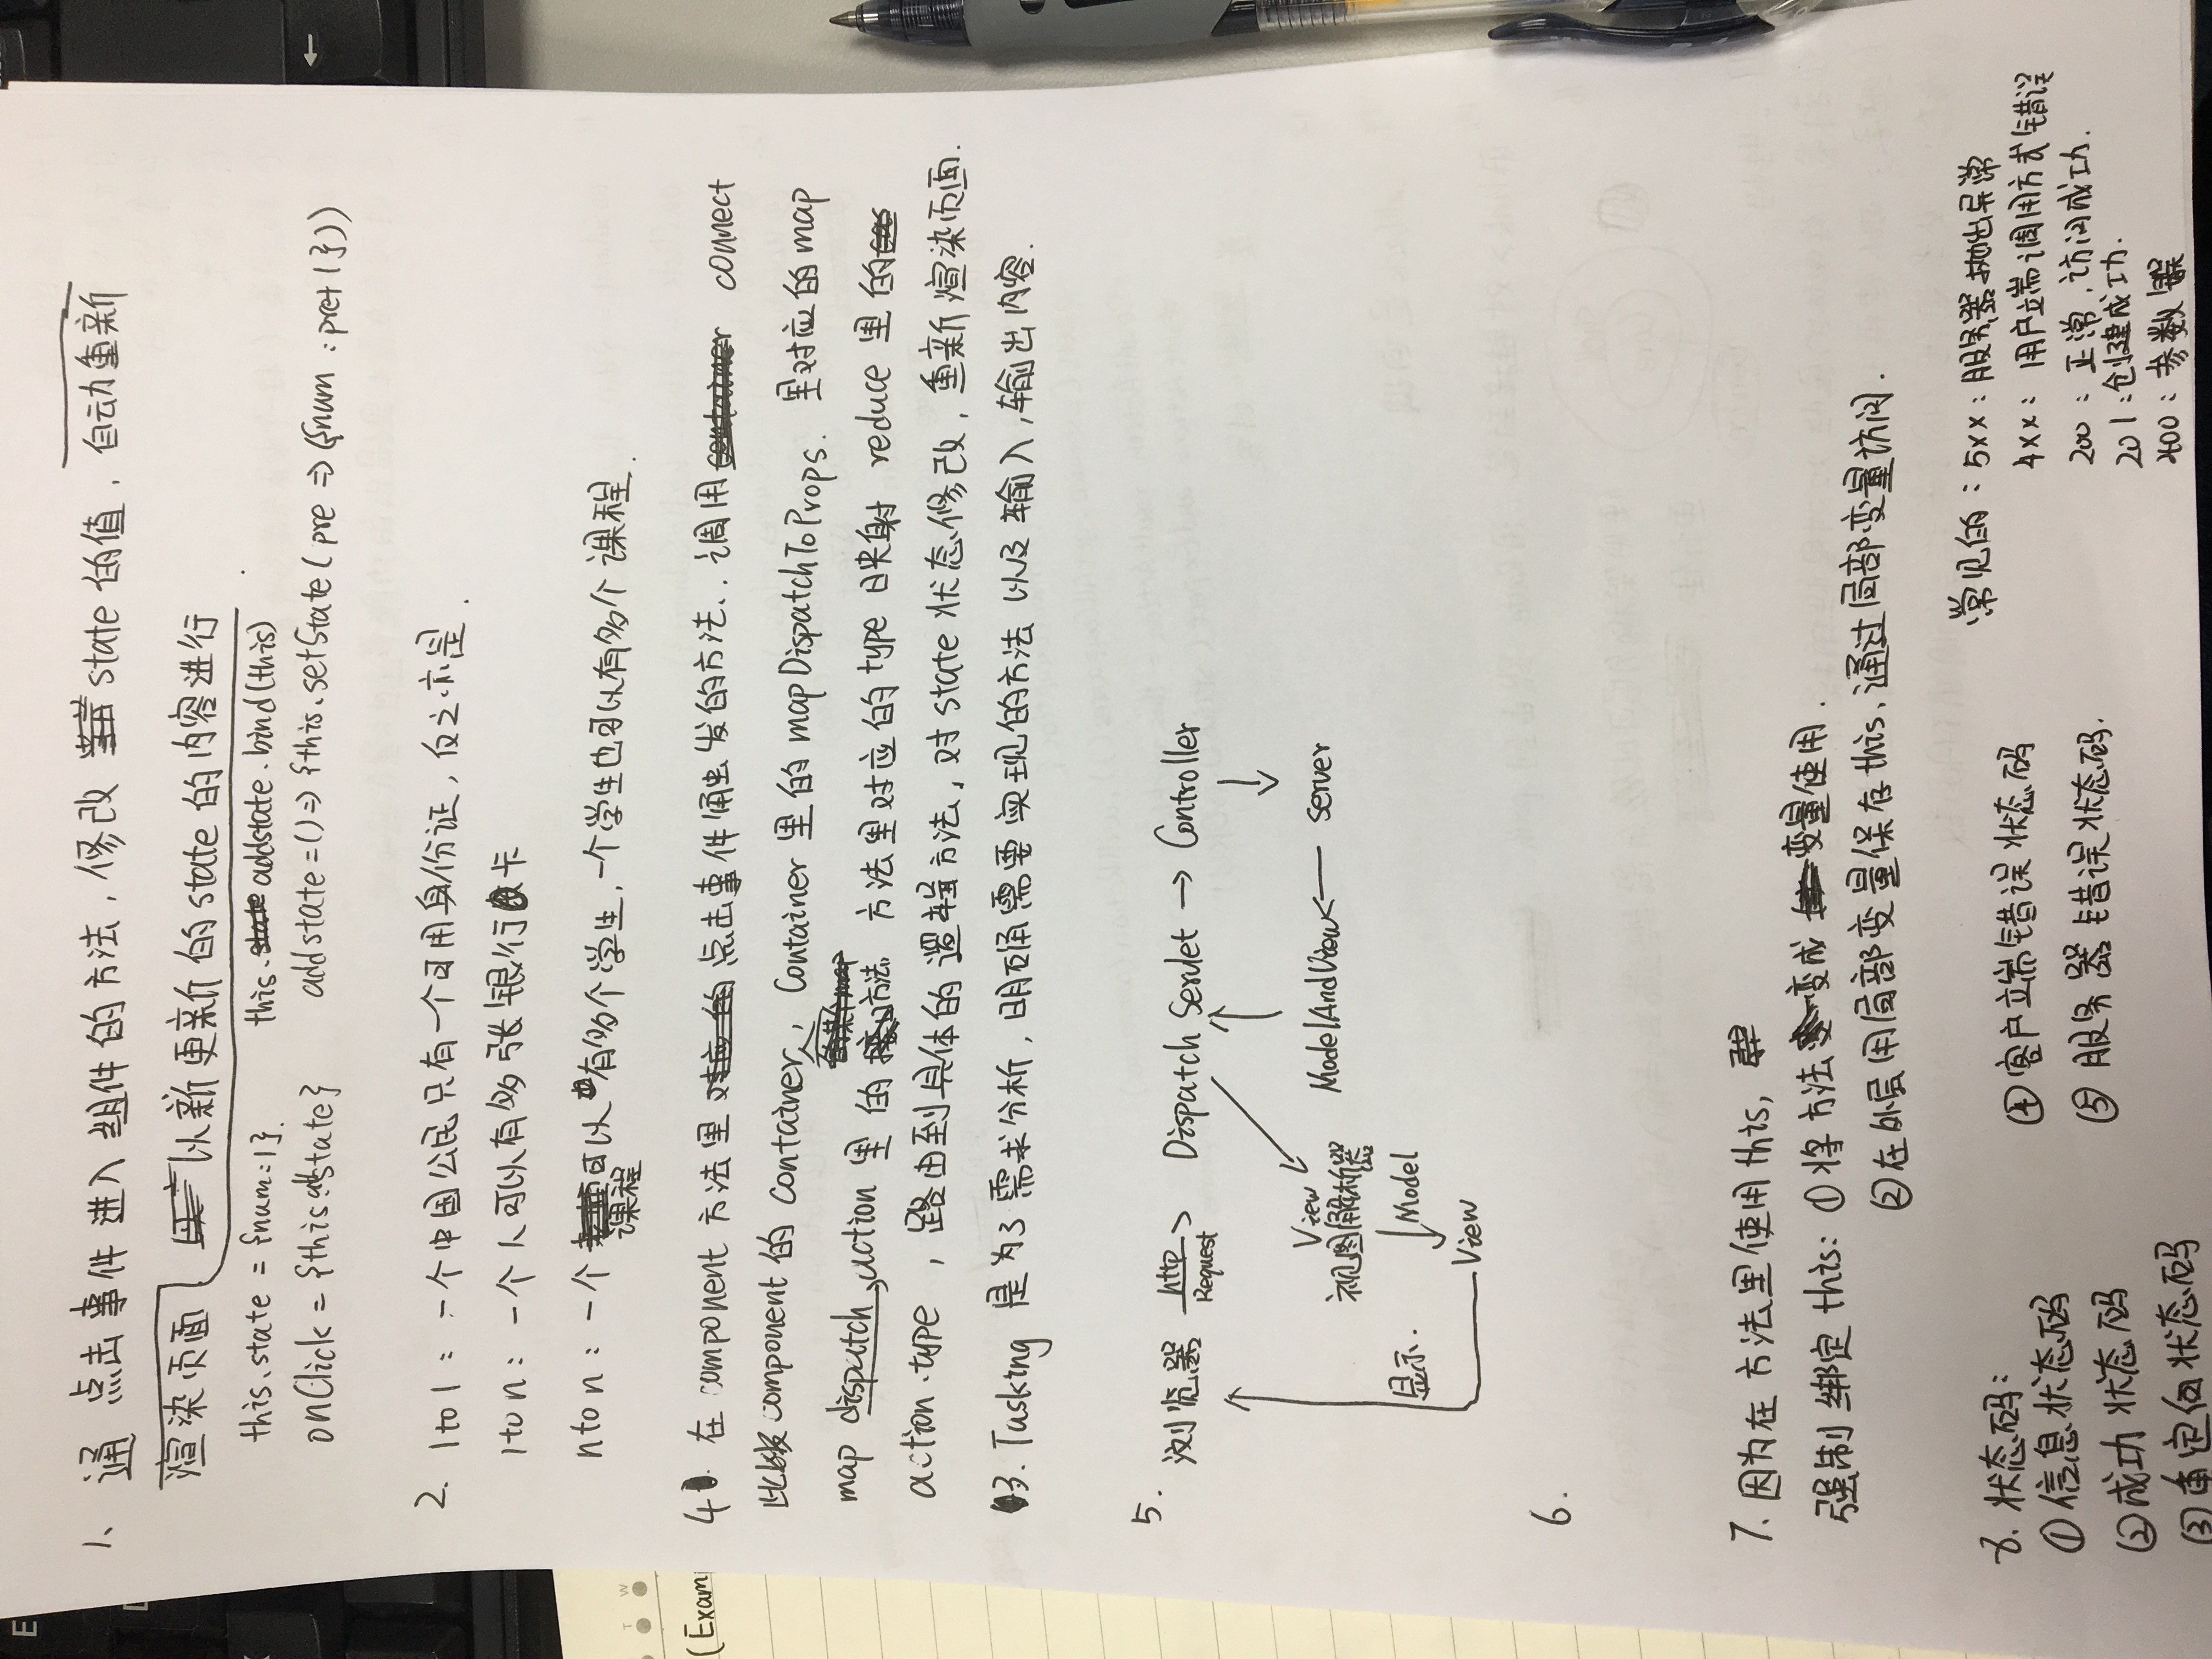 1、通 点击事件进入组件的方法,修改 state 的值,自动重新
渲染页面 以新更新的state的内容进行
this.state = {num:1}. this.addstate.bind(this)
onClick = {this.addState} addstate=()=> {this.setState( pre => ({num : pre+1}))
2. 1 to 1 : 一个中国公民只有一个可用身份证,反之亦是.
1 to n : 一个人可以有多张银行卡
n to n : 一个课程可以有多个学生,一个学生也可以有多个课程.
4. 在component 方法里点击事件触发的方法..调用 connect
此级component的container, Container里的mapDispatchToProps. 里对应的map
map dispatch action 里的方法 方法里对应的type映射 reduce 里的
action.type , 路由到具体的逻辑方法, 对state状态修改, 重新渲染页面.
3. Tasking 是为了需求分析, 明确需要实现的方法以及输入,输出内容.
5.
浏览器 http Request Dispatch Servlet → Controller
View
视图解析器 ModelAndView ← server
显示. Model
View
6.
7. 因为在方法里使用this,
强制绑定this: ①将方法变成变量使用.
②在外层用局部变量保存this, 通过局部变量访问.
8. 状态码:
①信息状态码
②成功状态码
③重定向状态码
④客户端错误状态码
⑤服务器错误状态码.
常见的 : 5xx : 服务器抛出异常
4xx : 用户端调用方式错误
200 : 正常,访问成功.
201 : 创建成功.
400 : 参数错误
(Exam
E
T W